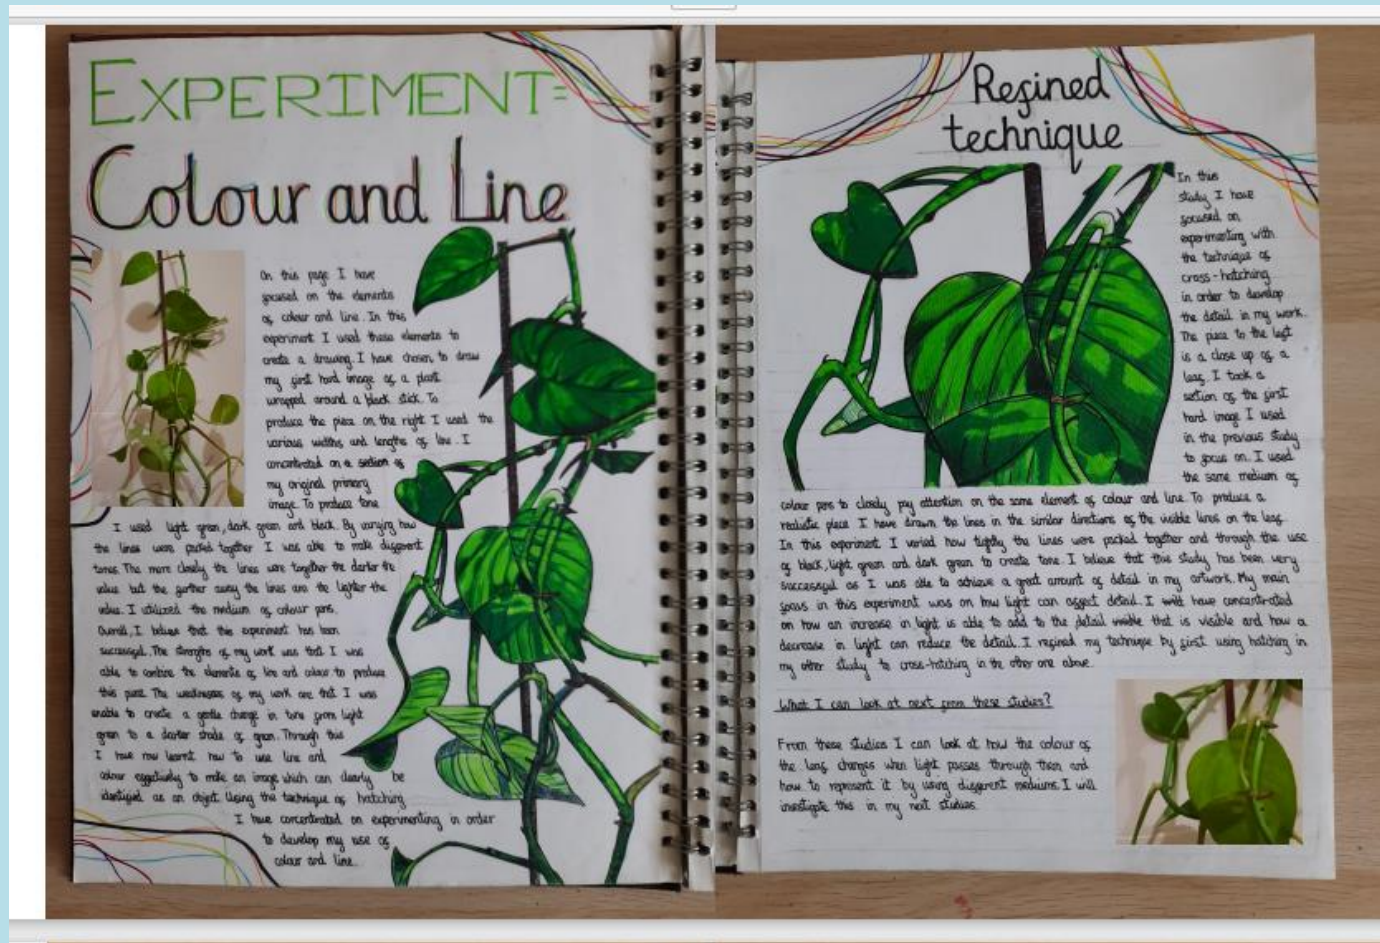 EXPERIMENT:
Colour and Line
On this page I have
focused on the elements
of colour and line. In this
experiment I used these elements to
create a drawing. I have chosen to draw
my first hand image of a plant
wrapped around a black stick. To
produce the piece on the right I used the
various widths and lengths of line. I
concentrated on a section of
my original primary
image. To produce tone
I used light green, dark green and black. By varying how
the lines were packed together I was able to make different
tones. The more closely the lines were together the darker the
value but the further away the lines are the lighter the
value. I utilized the medium of colour pens.
Overall, I believe that this experiment has been
successful. The strengths of my work was that I was
able to combine the elements of line and colour to produce
this piece. The weaknesses of my work are that I was
unable to create a gentle change in tone from light
green to a darker shade of green. Through this
I have now learnt how to use line and
colour effectively to make an image which can clearly be
identified as an object. Using the technique of hatching
I have concentrated on experimenting in order
to develop my use of
colour and line.
Refined
technique
In this
study I have
focused on
experimenting with
the technique of
cross-hatching
in order to develop
the detail in my work.
The piece to the left
is a close up of a
leaf. I took a
section of the first
hand image I used
in the previous study
to focus on. I used
the same medium of
colour pens to closely pay attention on the same element of colour and line. To produce a
realistic piece I have drawn the lines in the similar directions as the visible lines on the leaf.
In this experiment I varied how tightly the lines were packed together and through the use
of black, light green and dark green to create tone. I believe that this study has been very
successful as I was able to achieve a great amount of detail in my artwork. My main
focus in this experiment was on how light can affect detail. I have concentrated
on how an increase in light is able to add to the detail that is visible and how a
decrease in light can reduce the detail. I refined my technique by first using hatching in
my other study to cross-hatching in the other one above.
What I can look at next from these studies?
From these studies I can look at how the colour of
the leaf changes when light passes through them and
how to represent it by using different mediums. I will
investigate this in my next studies.